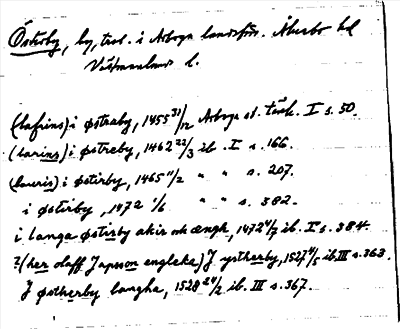 Österby, by, trol. i Arboga landsförs. Åkerbo hd
Västmanlands l.
(lafrins) i østraby, 1455 31/12 Arboga st. tänk. I s. 50.
(larins) i østreby, 1462 22/3 ib. I s. 166.
(lauris) i østirby, 1465 11/2 " " s. 207.
i østirby, 1472 1/6 " " s. 382.
i langa østerby akir ok ængh, 1472 4/7 ib. I s. 384.
?(her olaff Japsson engleka) J ystherby, 1527 4/5 ib. III s. 363.
J østherby langha, 1528 24/2 ib. III s. 367.